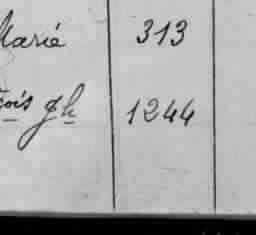 Marié 313
çois Jh 1244